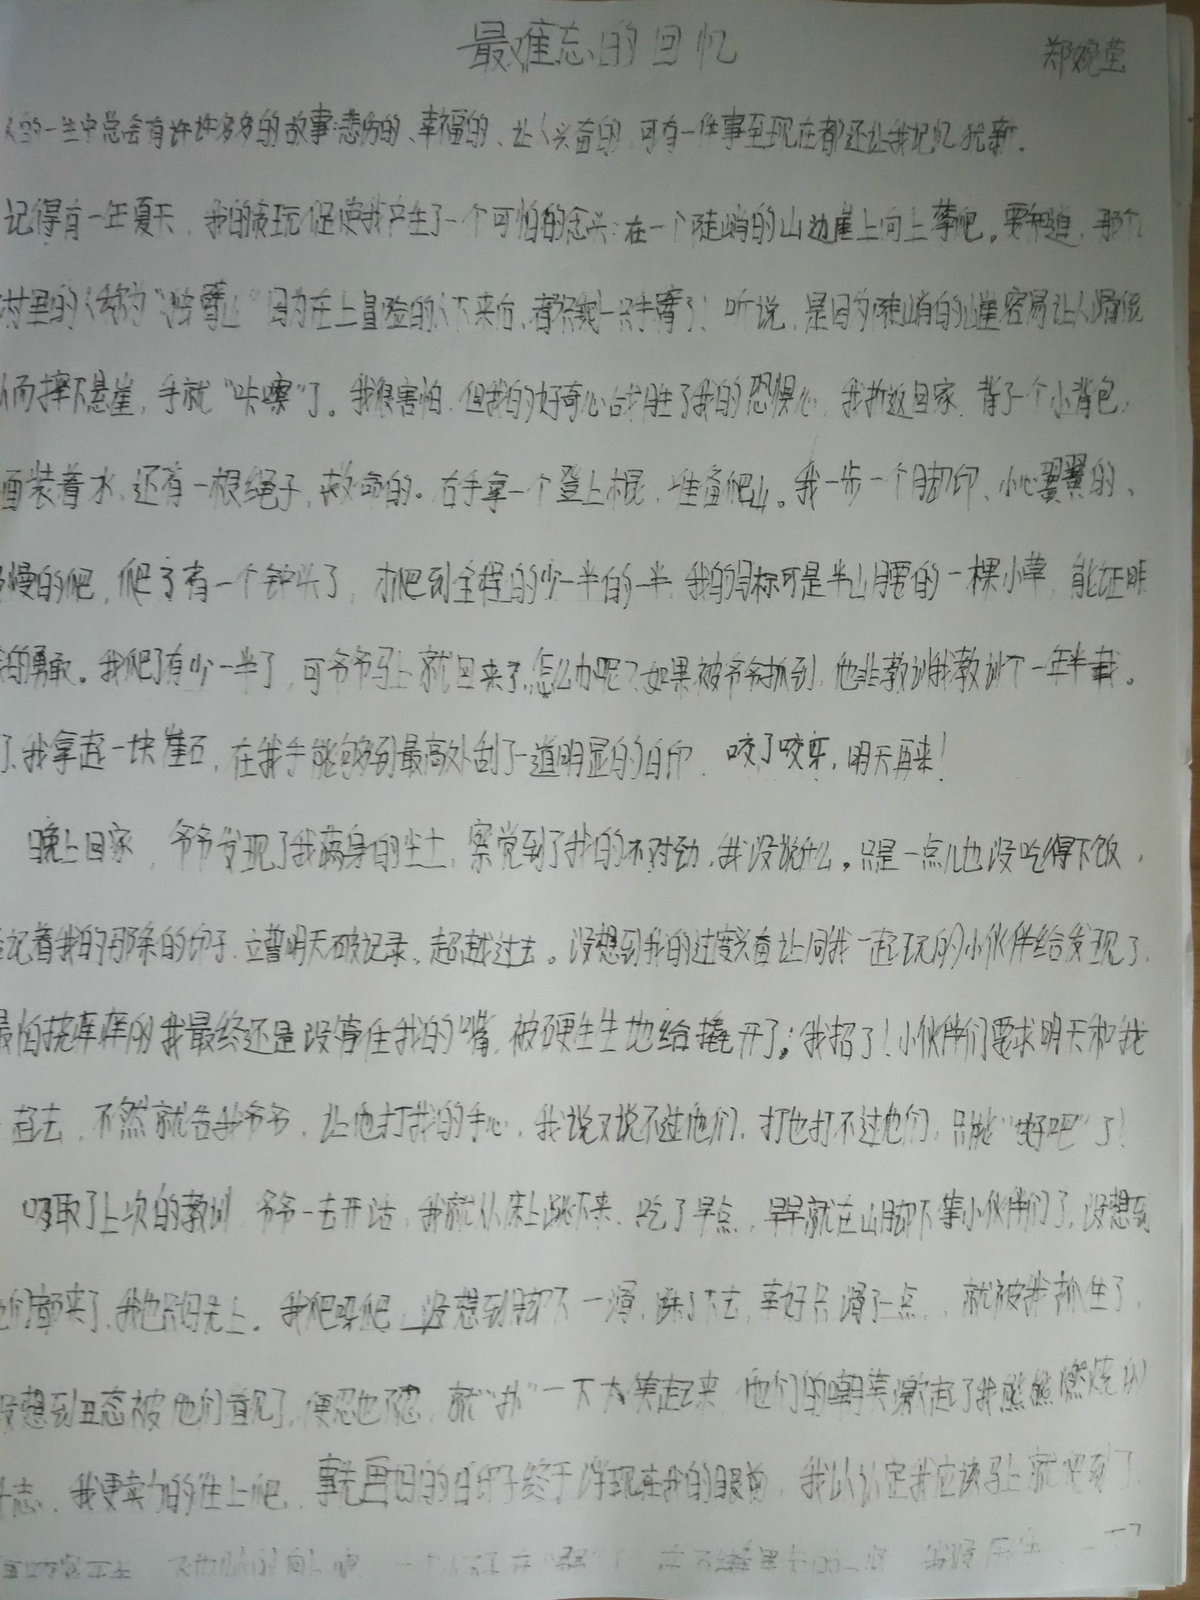 最难忘的回忆
郑婉莹
人的一生中总会有许许多多的故事:悲伤的、幸福的、让人兴奋的,可有一件事至现在都还让我记忆犹新。
记得有一年夏天,我的贪玩促使我产生了一个可怕的念头:在一个陡峭的山边崖上向上攀爬。要知道,那个
村里的人称为“独臂山”因为在上冒险的人下来后,都只剩一只手臂了!听说,是因为陡峭的山崖容易让人滑
从而摔下悬崖,手就“咔嚓”了。我很害怕,但我的好奇心战胜了我的恐惧心,我折返回家,背了一个小背包,
面装着水,还有一根绳子,救命的。右手拿一个登上棍,准备爬山。我一步一个脚印、小心翼翼的、
慢慢的爬,爬了有一个钟头了,才爬到全程的少一半的一半,我的目标可是半山腰的一棵小草,能证明
我的勇敢。我爬了有少一半了,可爷爷马上就回来了,怎么办呢?如果被爷爷抓到,他非教训我教训个一年半载。
了,我拿起一块崖石,在我手能够到最高处刮了一道明显的白印,咬了咬牙,明天再来!
晚上回家,爷爷发现了我满身的尘土,察觉到了我的不对劲,我没说什么。只是一点儿也没吃得下饭,
记着我的那条的印子,立誓明天破记录、超越过去。没想到我的过度兴奋让同我一起玩的小伙伴给发现了,
最怕挠痒痒的我最终还是没管住我的嘴,被硬生生地给撬开了:我招了!小伙伴们要求明天和我
起去,不然就告我爷爷,让他打我的手心,我说又说不过他们,打也打不过他们,只能“好吧”了!
吸取了上次的教训,爷爷一去干活,我就从床上跳下来,吃了早点,早早就在山脚下等小伙伴们了,没想到
他们都来了,我也只好先上。我爬呀爬,没想到脚下一滑,掉了下去,幸好只滑了一点,就被我抓住了,
没想到丑态被他们看见了,便忍也不忍,就“扑”一下大笑起来,他们的嘲笑激起了我熊熊燃烧的
斗志,我更卖力的往上爬,事先画好的白印子终于浮现在我的眼前,我认定我应该马上就爬到了